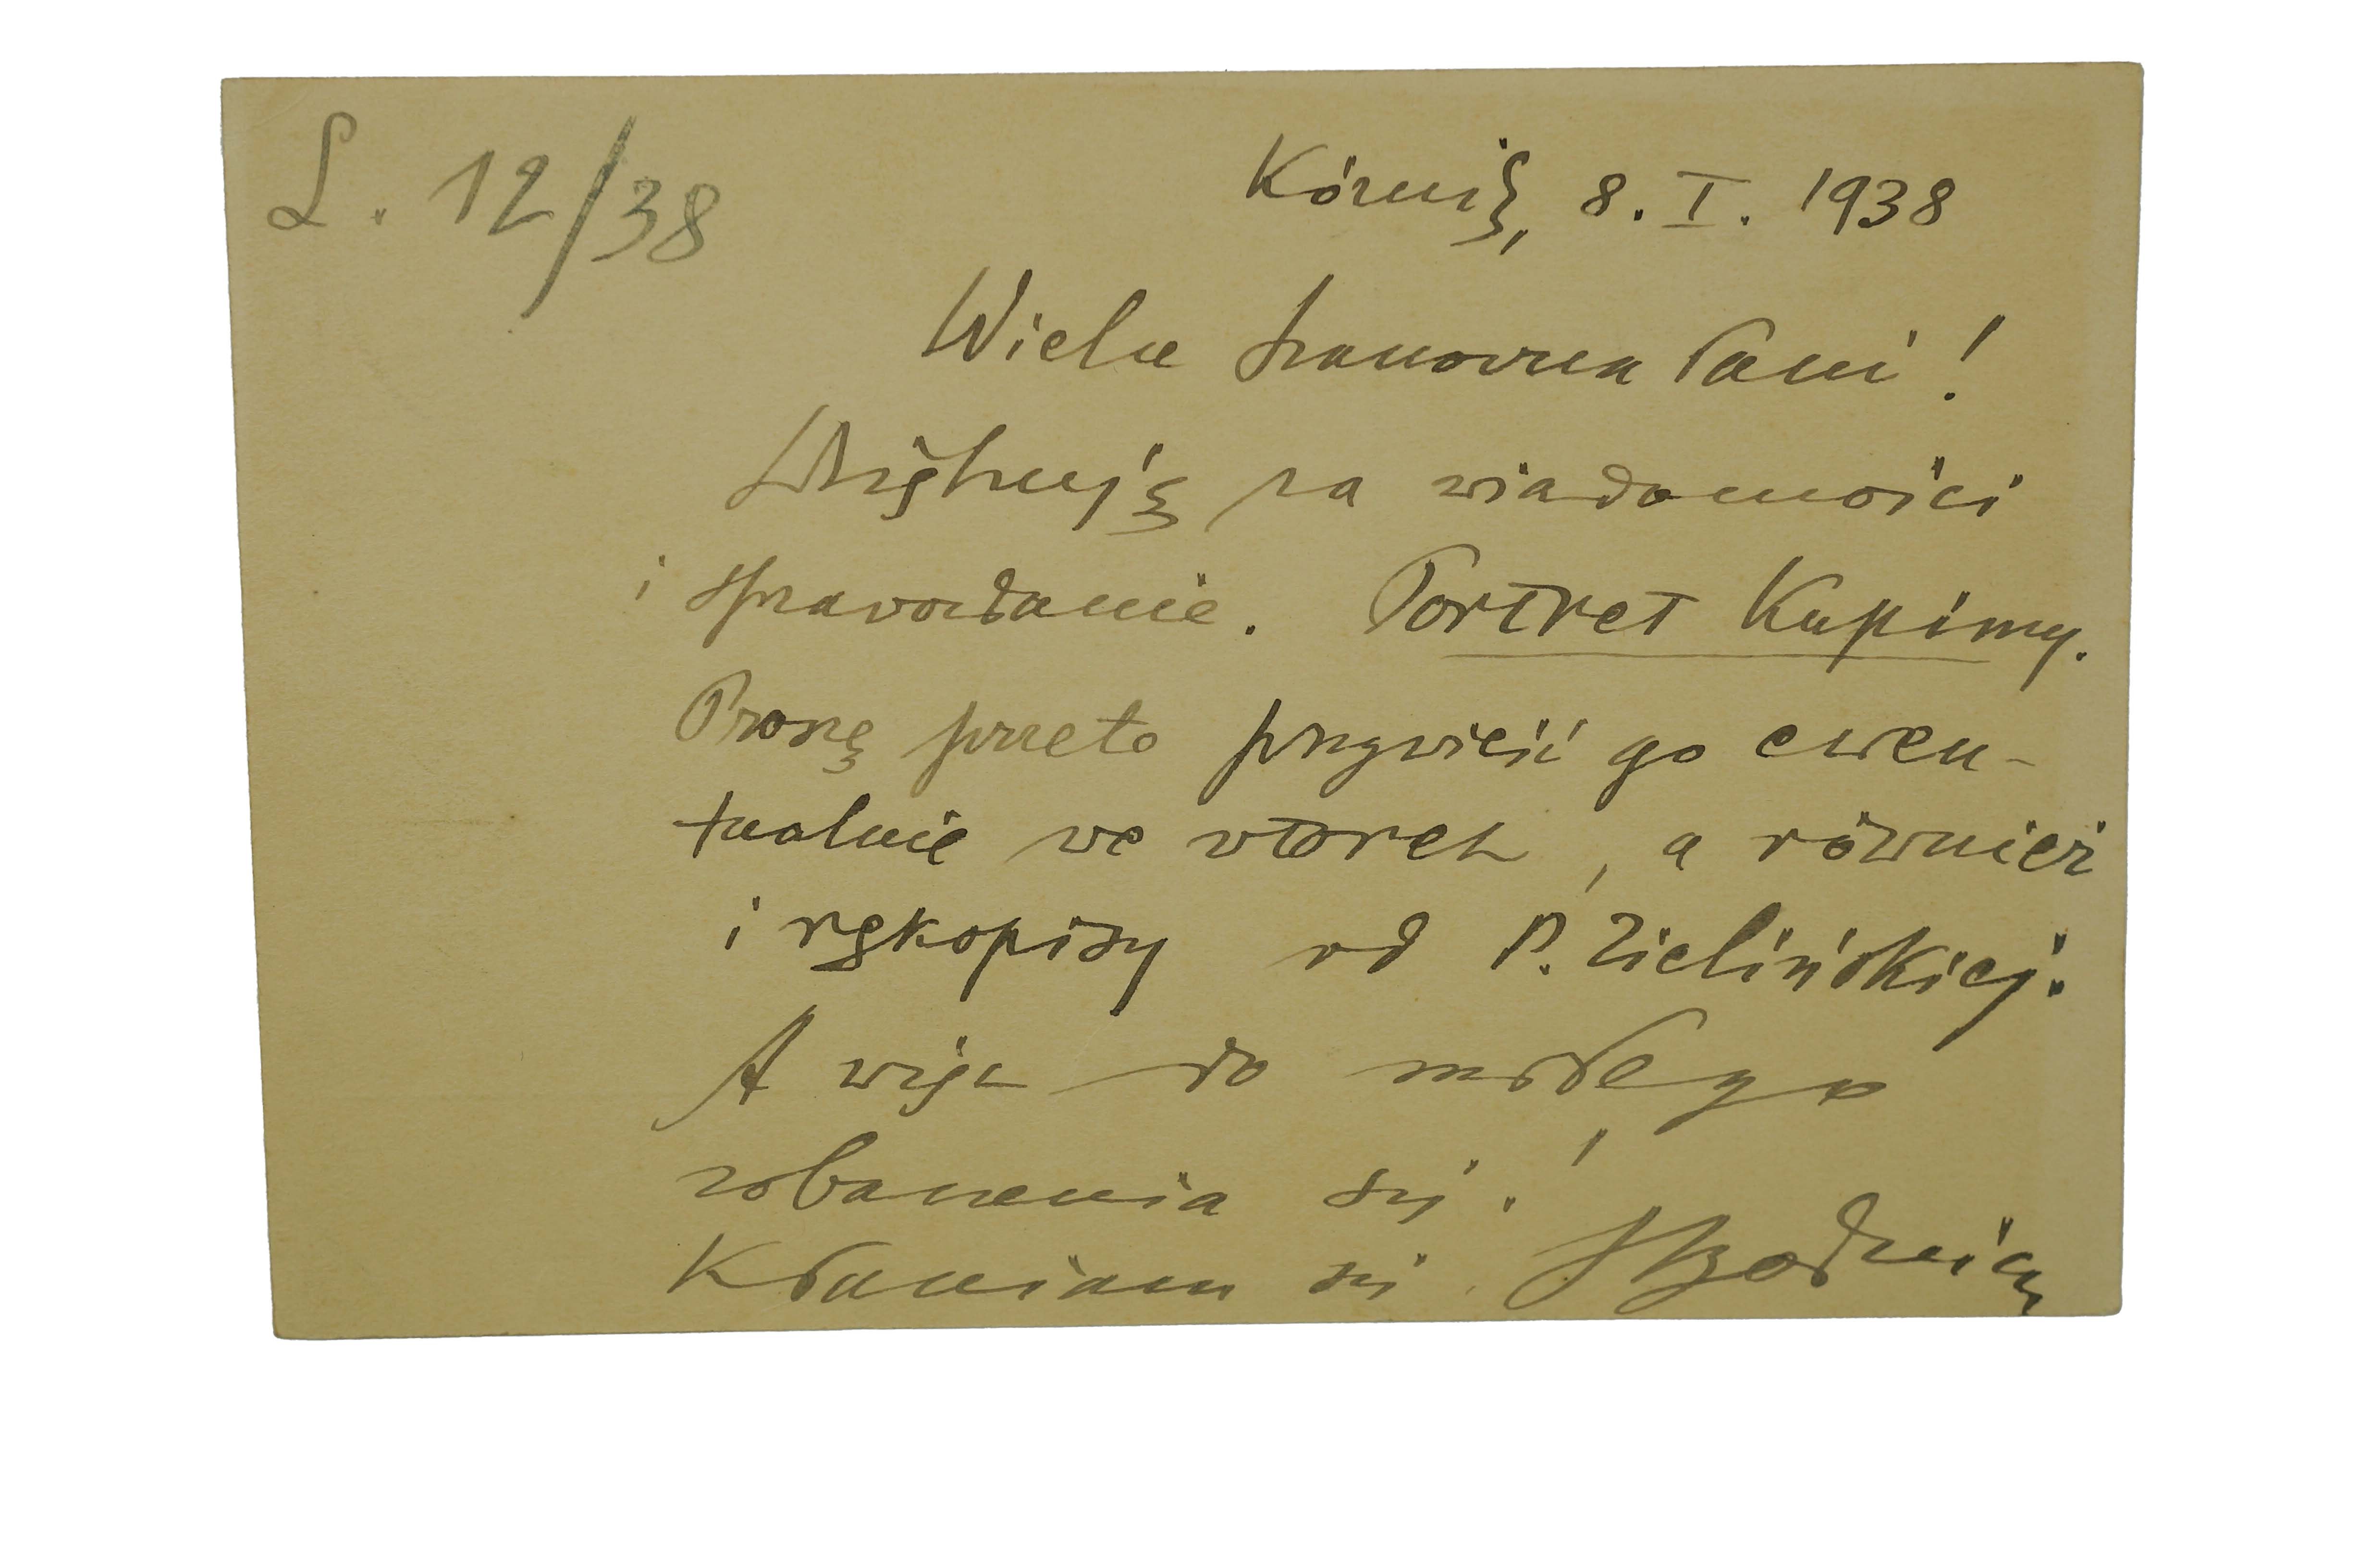 L. 12/38
Kórnik, 8. I. 1938
Wielce Szanowna Pani!
Dziękuję za wiadomości
i sprawozdanie. Portret Kupimy.
Proszę przeto przywieźć go ewen-
tualnie we wtorek, a również
i rękopisy od P. Zielińskiej.
A więc do miłego
zobaczenia się!
Kłaniam się.